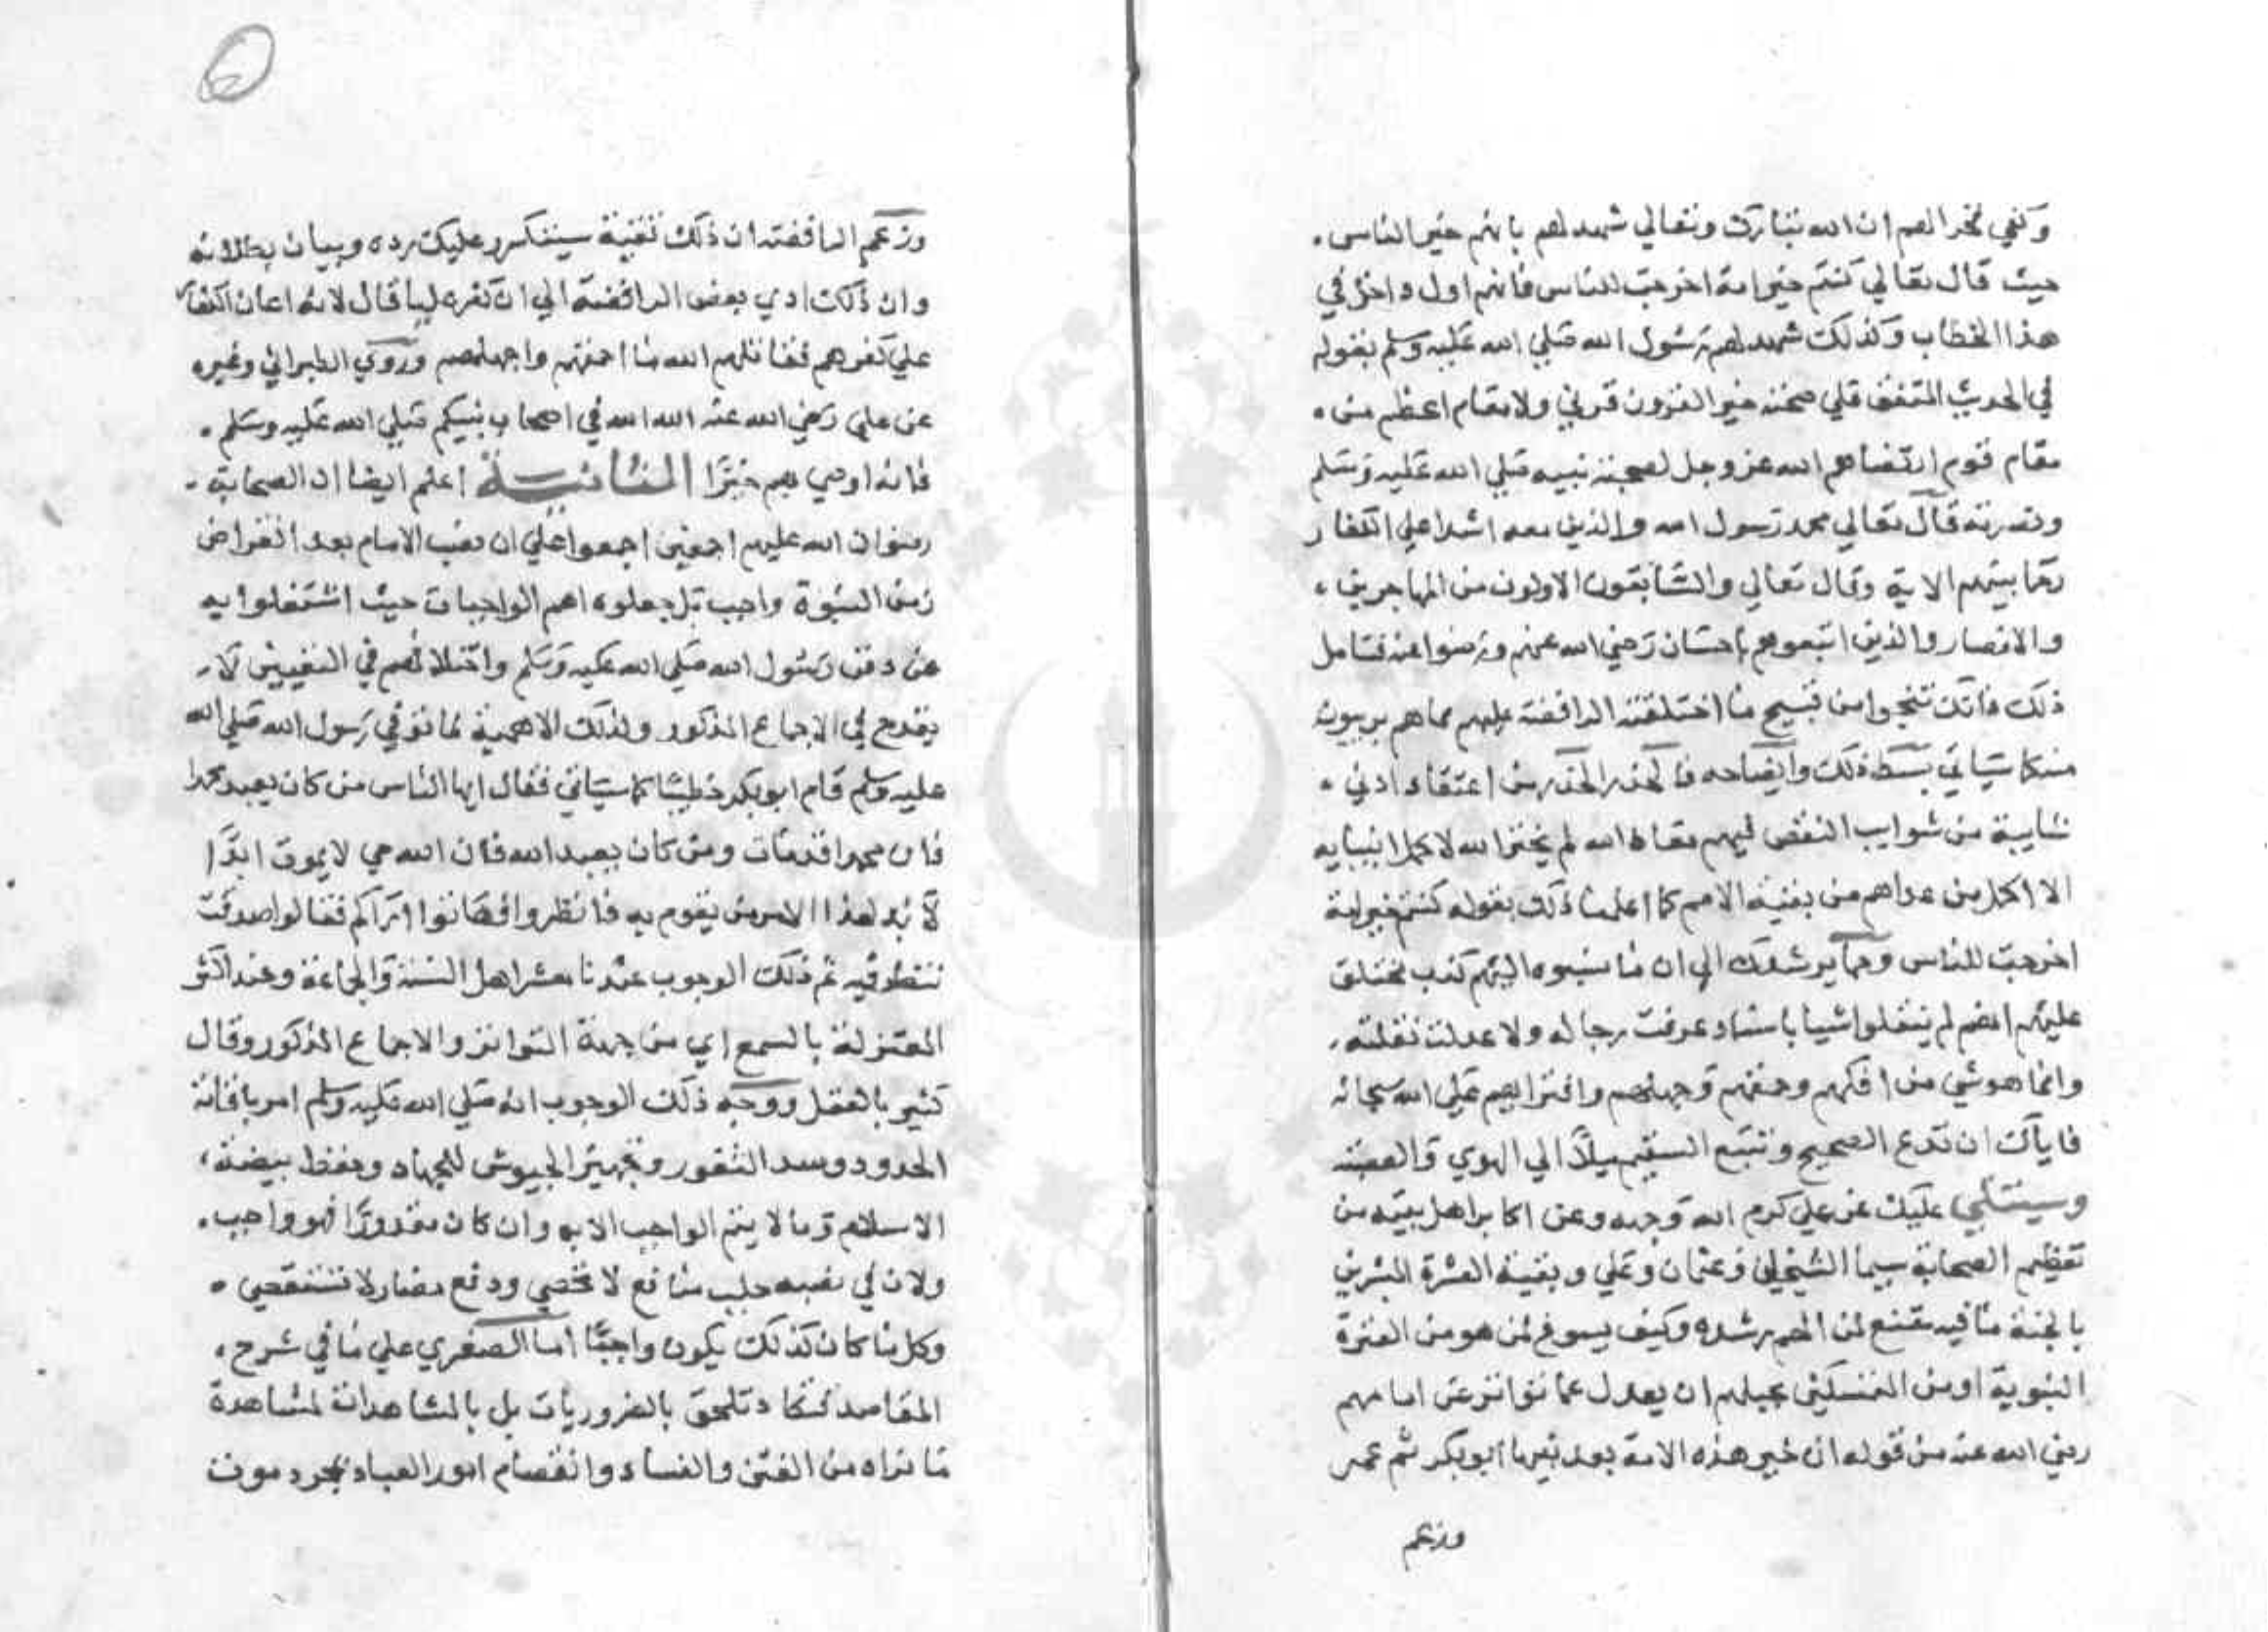 وكفي فخرا لهم ان الله تبارك وتعالي شهد لهم بانهم خير الناس .
حيث قال تعالي كنتم خير امة اخرجت للناس فانهم اول داخل في
هذا الخطاب وكذلك شهد لهم رسول الله صلي الله عليه وسلم بقوله
في الحديث المتفق علي صحته خير القرون قرني ولا مقام اعظم من .
مقام قوم ارتضاهم الله عز وجل لصحبة نبيه صلي الله عليه وسلم
ونصرته قال تعالي محمد رسول الله والذين معه اشدا علي الكفار
رحما بينهم الاية وقال تعالي والسابقون الاولون من المهاجرين .
والانصار والذين اتبعوهم باحسان رضي الله عنهم ورضوا عنه فتامل
ذلك فانك تنجوا من قبيح ما اختلقته الرافضة عليهم مما هم بريون
منه كما سياتي بسط ذلك وايضاحه فالحذر الحذر من اعتقاد ادني .
شايبة من شوايب النقص فيهم معاذ الله لم يختر الله لاكمل انبيايه
الا اكمل من عداهم من بقية الامم كما اعلمنا ذلك بقوله كنتم خير امة
اخرجت للناس ومما يرشدك الي ان ما نسبوه اليهم كذب مختلق
عليهم انهم لم ينقلوا شيا باسناد عرفت رجاله ولا عدلت نقلته .
وانما هو شي من افكهم وحمقهم وجهلهم وافترايهم علي الله سبحانه
فاياك ان تدع الصحيح وتتبع السقيم ميلا الي الهوي والعصبية
وسيتلي عليك عن علي كرم الله وجهه وعن اكابر اهل بيته من
تعظيم الصحابة سيما الشيخان وعثمان وعلي وبقية العشرة المبشرين
بالجنة ما فيه مقنع لمن الهم رشده وكيف يسوغ لمن هو من العترة
النبوية او من المتمسكين بحبلهم ان يعدل عما تواتر عن امامهم
رضي الله عنه من قوله ان خير هذه الامة بعد نبيها ابو بكر ثم عمر
وزعم
وزعم الرافضة ان ذلك تقية سيتكرر عليك رده وبيان بطلانه
وان ذلك ادي بعض الرافضة الي ان كفر عليا قال لانه اعان الكفار
علي كفرهم فقاتلهم الله ما احمقهم واجهلهم وروي الطبراني وغيره
عن علي رضي الله عنه الله الله في اصحاب نبيكم صلي الله عليه وسلم .
فانه اوصي بهم خيرا الثانية اعلم ايضا ان الصحابة .
رضوان الله عليهم اجمعين اجمعوا علي ان نصب الامام بعد انقراض
زمن النبوة واجب بل جعلوه اهم الواجبات حيث اشتغلوا به
عن دفن رسول الله صلي الله عليه وسلم واختلافهم في التعيين لا .
يقدح في الاجماع المذكور ولتلك الاهمية لما توفي رسول الله صلي الله
عليه وسلم قام ابو بكر خطيبا كما سياتي فقال ايها الناس من كان يعبد محمدا
فان محمدا قد مات ومن كان يعبد الله فان الله حي لا يموت ابدا
لا بد لهذا الامر من يقوم به فانظروا وهاتوا اراكم فقالوا صدقت
ننظر فيه ثم ذلك الوجوب عندنا معشر اهل السنة والجماعة وعند اكثر
المعتزلة بالسمع اي من جهة التواتر والاجماع المذكور وقال
كثير بالعقل ووجه ذلك الوجوب انه صلي الله عليه وسلم امر باقامة
الحدود وسد الثغور وتجهيز الجيوش للجهاد وحفظ بيضة ،
الاسلام وما لا يتم الواجب الا به وان كان مقدورا فهو واجب .
ولان في نصبه جلب منافع لا تحصي ودفع مضار لا تستقصي .
وكل ما كان كذلك يكون واجبا اما الصغري علي ما في شرح ،
المقاصد فتكاد تلحق بالضروريات بل بالمشاهدات لمشاهدة
ما نراه من الفتن والفساد وانفصام امور العباد بمجرد موت